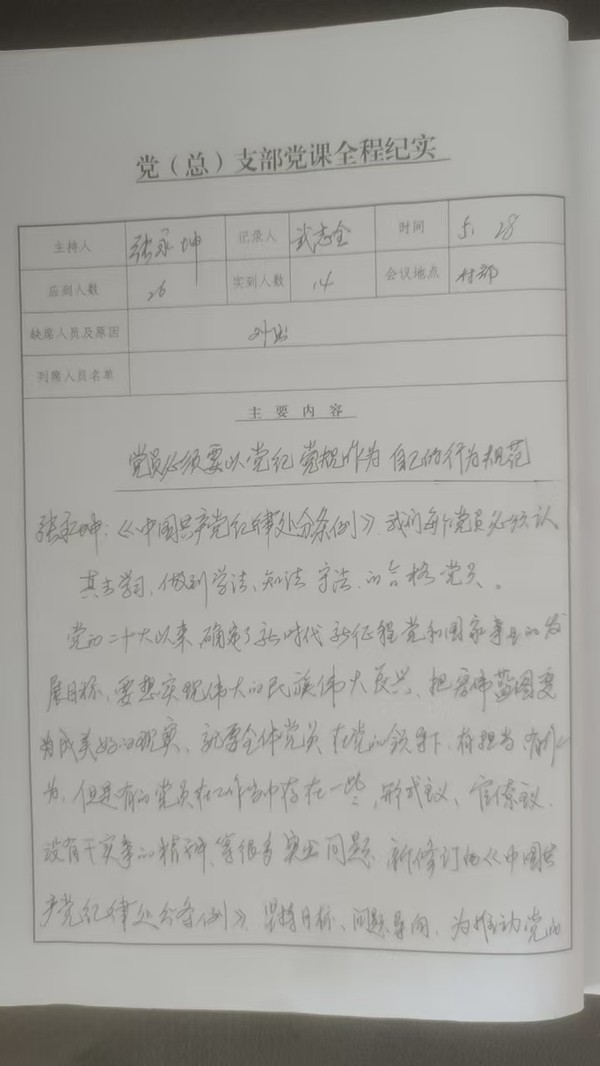 党（总）支部党课全程纪实
主持人 张永坤 记录人 武志全 时间 5. 28
应到人数 26 实到人数 14 会议地点 村部
缺席人员及原因
列席人员名单
主要内容
党员必须要以党纪党规作为自己的行为规范
张永坤：《中国共产党纪律处分条例》我们每个党员必须认
真去学习，做到学法、知法、守法、的合格党员。
党的二十大以来，确定了新时代新征程党和国家事业的发
展目标，要想实现伟大的民族伟大复兴，把宏伟蓝图变
为成美好的现实，就要全体党员在党的领导下，有担当、有作
为，但是有的党员在工作当中存在一些，形式主义、官僚主义，
没有干实事的精神，等很多突出问题，新修订的《中国共
产党纪律处分条例》，坚持目标、问题导向，为推动党的